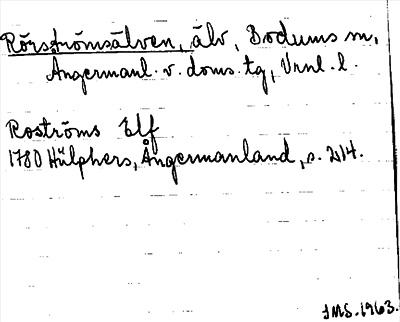 Rörströmsälven, älv, Bodums sn,
Ångermanl. v. doms. tg, Vrnl. l.
Roströms Elf
1780 Hülphers, Ångermanland, s. 214.
IMS. 1963.